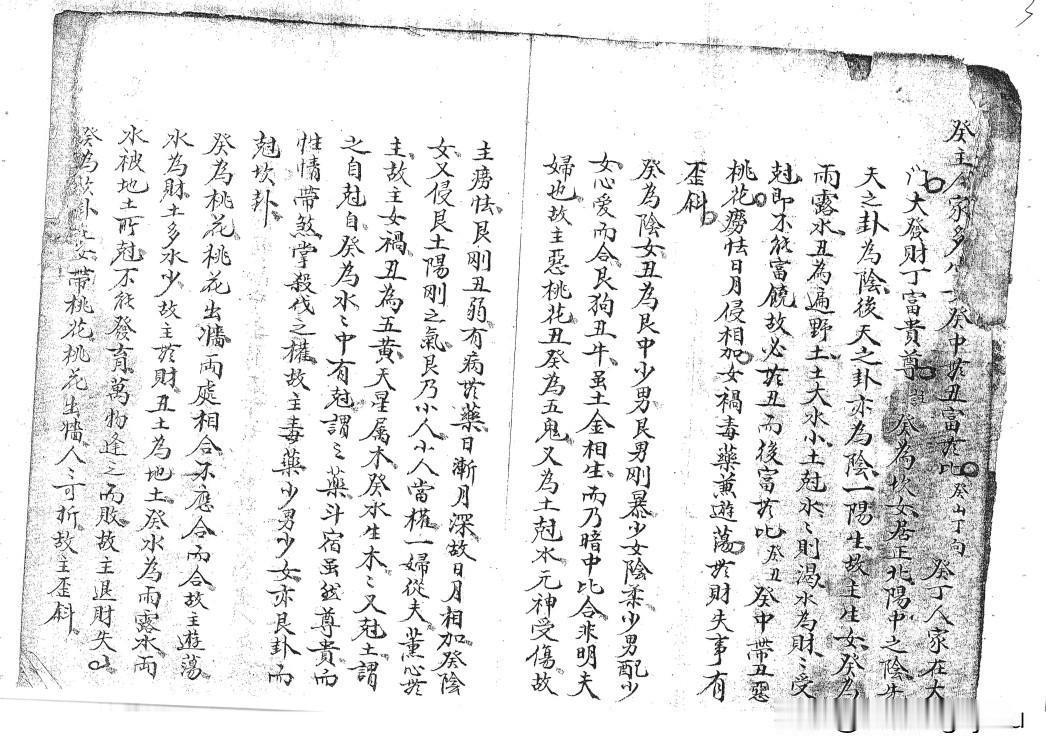 癸主人家多少女癸中於丑富於比癸山丁向　癸丁人家在大
門大發財丁富貴尊　癸為坎女居正北陽中之陰先
天之卦為陰後天之卦亦為陰一陽生故主生女癸為
雨露水丑為遍野土土大水小土尅水〻則渴水為財〻受
尅即不能富饒故必於丑而後富於比癸丑　癸中帶丑惡
桃花癆怯日月侵相加女禍毒藥兼遊蕩於財失事有
歪斜
癸為陰女丑為艮中少男艮男剛暴少女陰柔少男配少
女心愛而合艮狗丑牛虽土金相生而乃暗中比合非明夫
婦也故主惡桃花丑癸為五鬼又為土尅水元神受傷故
主癆怯艮剛丑弱有病於藥日漸月深故日月相加癸陰
女又侵艮土陽剛之氣艮乃小人小人當權一婦從夫薰心於
主故主女禍丑為五黄天星属木癸水生木〻又尅土謂
之自尅自癸為水〻中有尅謂之藥斗宿虽然尊貴而
性情帶煞掌殺伐之權故主毒藥少男少女亦艮卦而
尅坎卦
癸為桃花桃花出墻兩處相合不應合而合故主遊蕩
水為財土多水少故主於財丑土為地土癸水為雨露水雨
水被地土所尅不能發育萬物逢之而敗故主退財失
癸為坎卦女帶桃花桃花出墻人〻可折故主歪斜